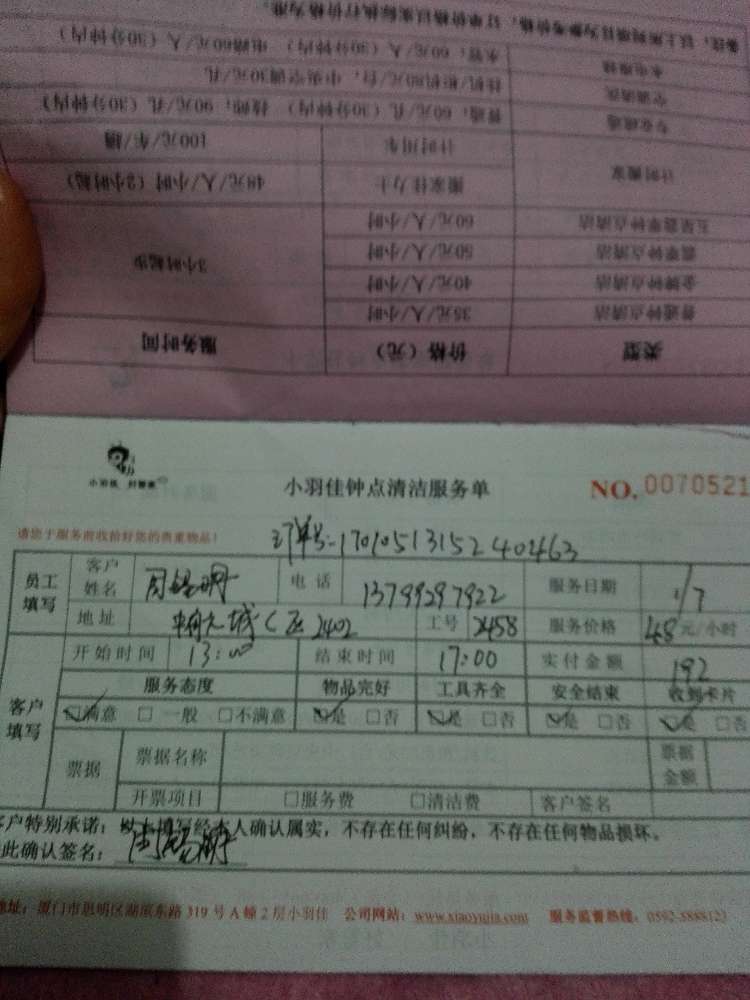 备注：以上所列项目为参考价格，订单价格以实际执行价格为准。
水电维修 水管：60元/人（30分钟内） 电路60元/人（30分钟内）
空调清洗 挂机/柜机80元/台，中央空调30元/孔
专业疏通 普通：60元/孔（30分钟内） 技师：90元/孔（30分钟内）
计时搬家 计时用车 100元/车/辆
搬家佳力士 48元/人/小时（2小时起）
五星翡翠钟点清洁 60元/人/小时 3小时起步
翡翠钟点清洁 50元/人/小时
金牌钟点清洁 40元/人/小时
普通钟点清洁 35元/人/小时
类型 价格（元） 服务时间
小羽佳
小羽佳钟点清洁服务单 NO. 0070521
请您于服务前收拾好您的贵重物品！ 订单号-17010513152402463
员工填写 客户姓名 电话 13799297922 服务日期 1/7
地址 城C区2402 工号 2458 服务价格 48元/小时
客户填写 开始时间 13:00 结束时间 17:00 实付金额 192
服务态度 物品完好 工具齐全 安全结束 收到卡片
☑满意 □一般 □不满意 ☑是 □否 ☑是 □否 ☑是 □否 ☑是 □否
票据 票据名称 票据金额
开票项目 □服务费 □清洁费 客户签名
客户特别承诺：以上填写经本人确认属实，不存在任何纠纷，不存在任何物品损坏。
此确认签名：
地址：厦门市思明区湖滨东路319号A幢2层小羽佳 公司网站：www.xiaoyujia.com 服务监督热线：0592-5888123